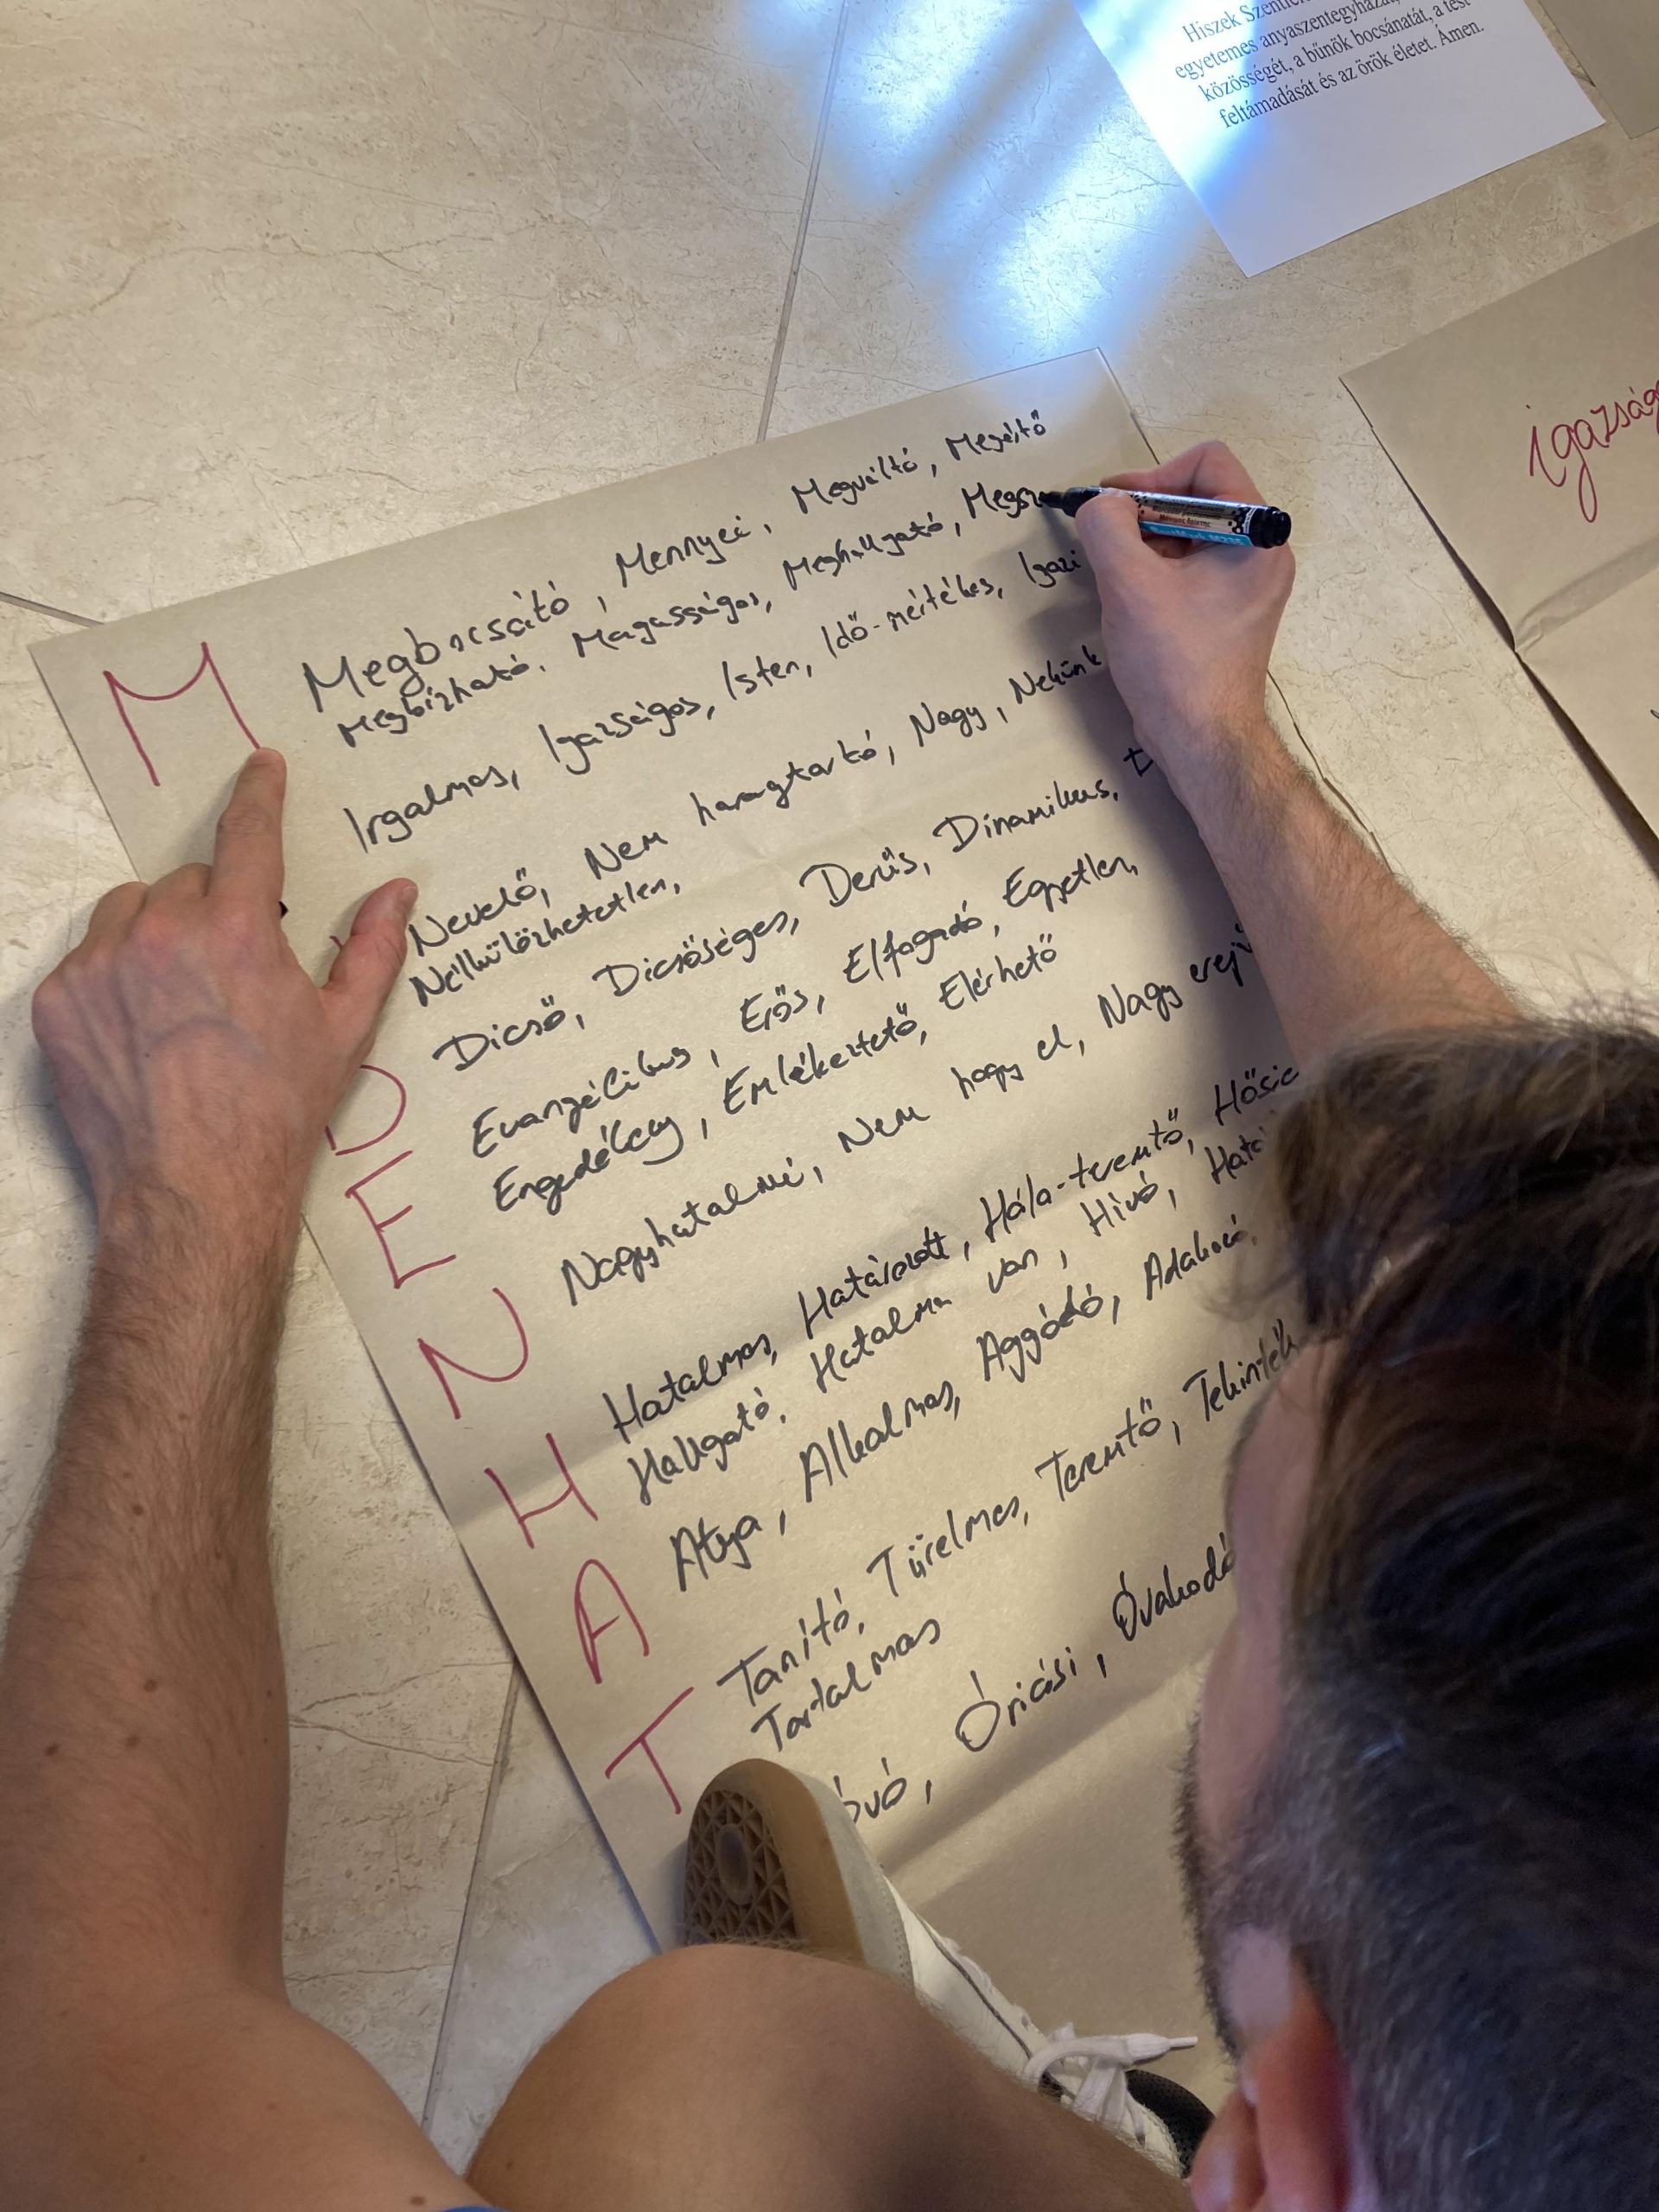 Hiszek
egyetemes anyaszentegyházat,
közösségét, a bűnök bocsánatát, a test
feltámadását és az örök életet. Ámen.
igazság
M
Megbocsátó, Mennyei, Megváltó, Megértő
Megbízható, Magasságos, Meghallgató, Megsz
Irgalmas, Igazságos, Isten, Idő-mértékes, Igazi
Nevelő, Nem haragtartó, Nagy, Nekünk
Nélkülözhetetlen,
D
Dicső, Dicsőséges, Derűs, Dinamikus,
E
Evangélikus, Erős, Elfogadó, Egyetlen,
Engedékeny, Emlékeztető, Elérhető
N
Nagyhatalmú, Nem hagy el, Nagy erejű
H
Hatalmas, Határozott, Hála-teremtő, Hősi
Hallgató, Hatalma van, Hívó, Hatá
A
Atya, Alkalmas, Aggódó, Adakozó,
T
Tanító, Türelmes, Teremtő, Tekinté
Tartalmas
Óvó, Óriási, Óvakodó